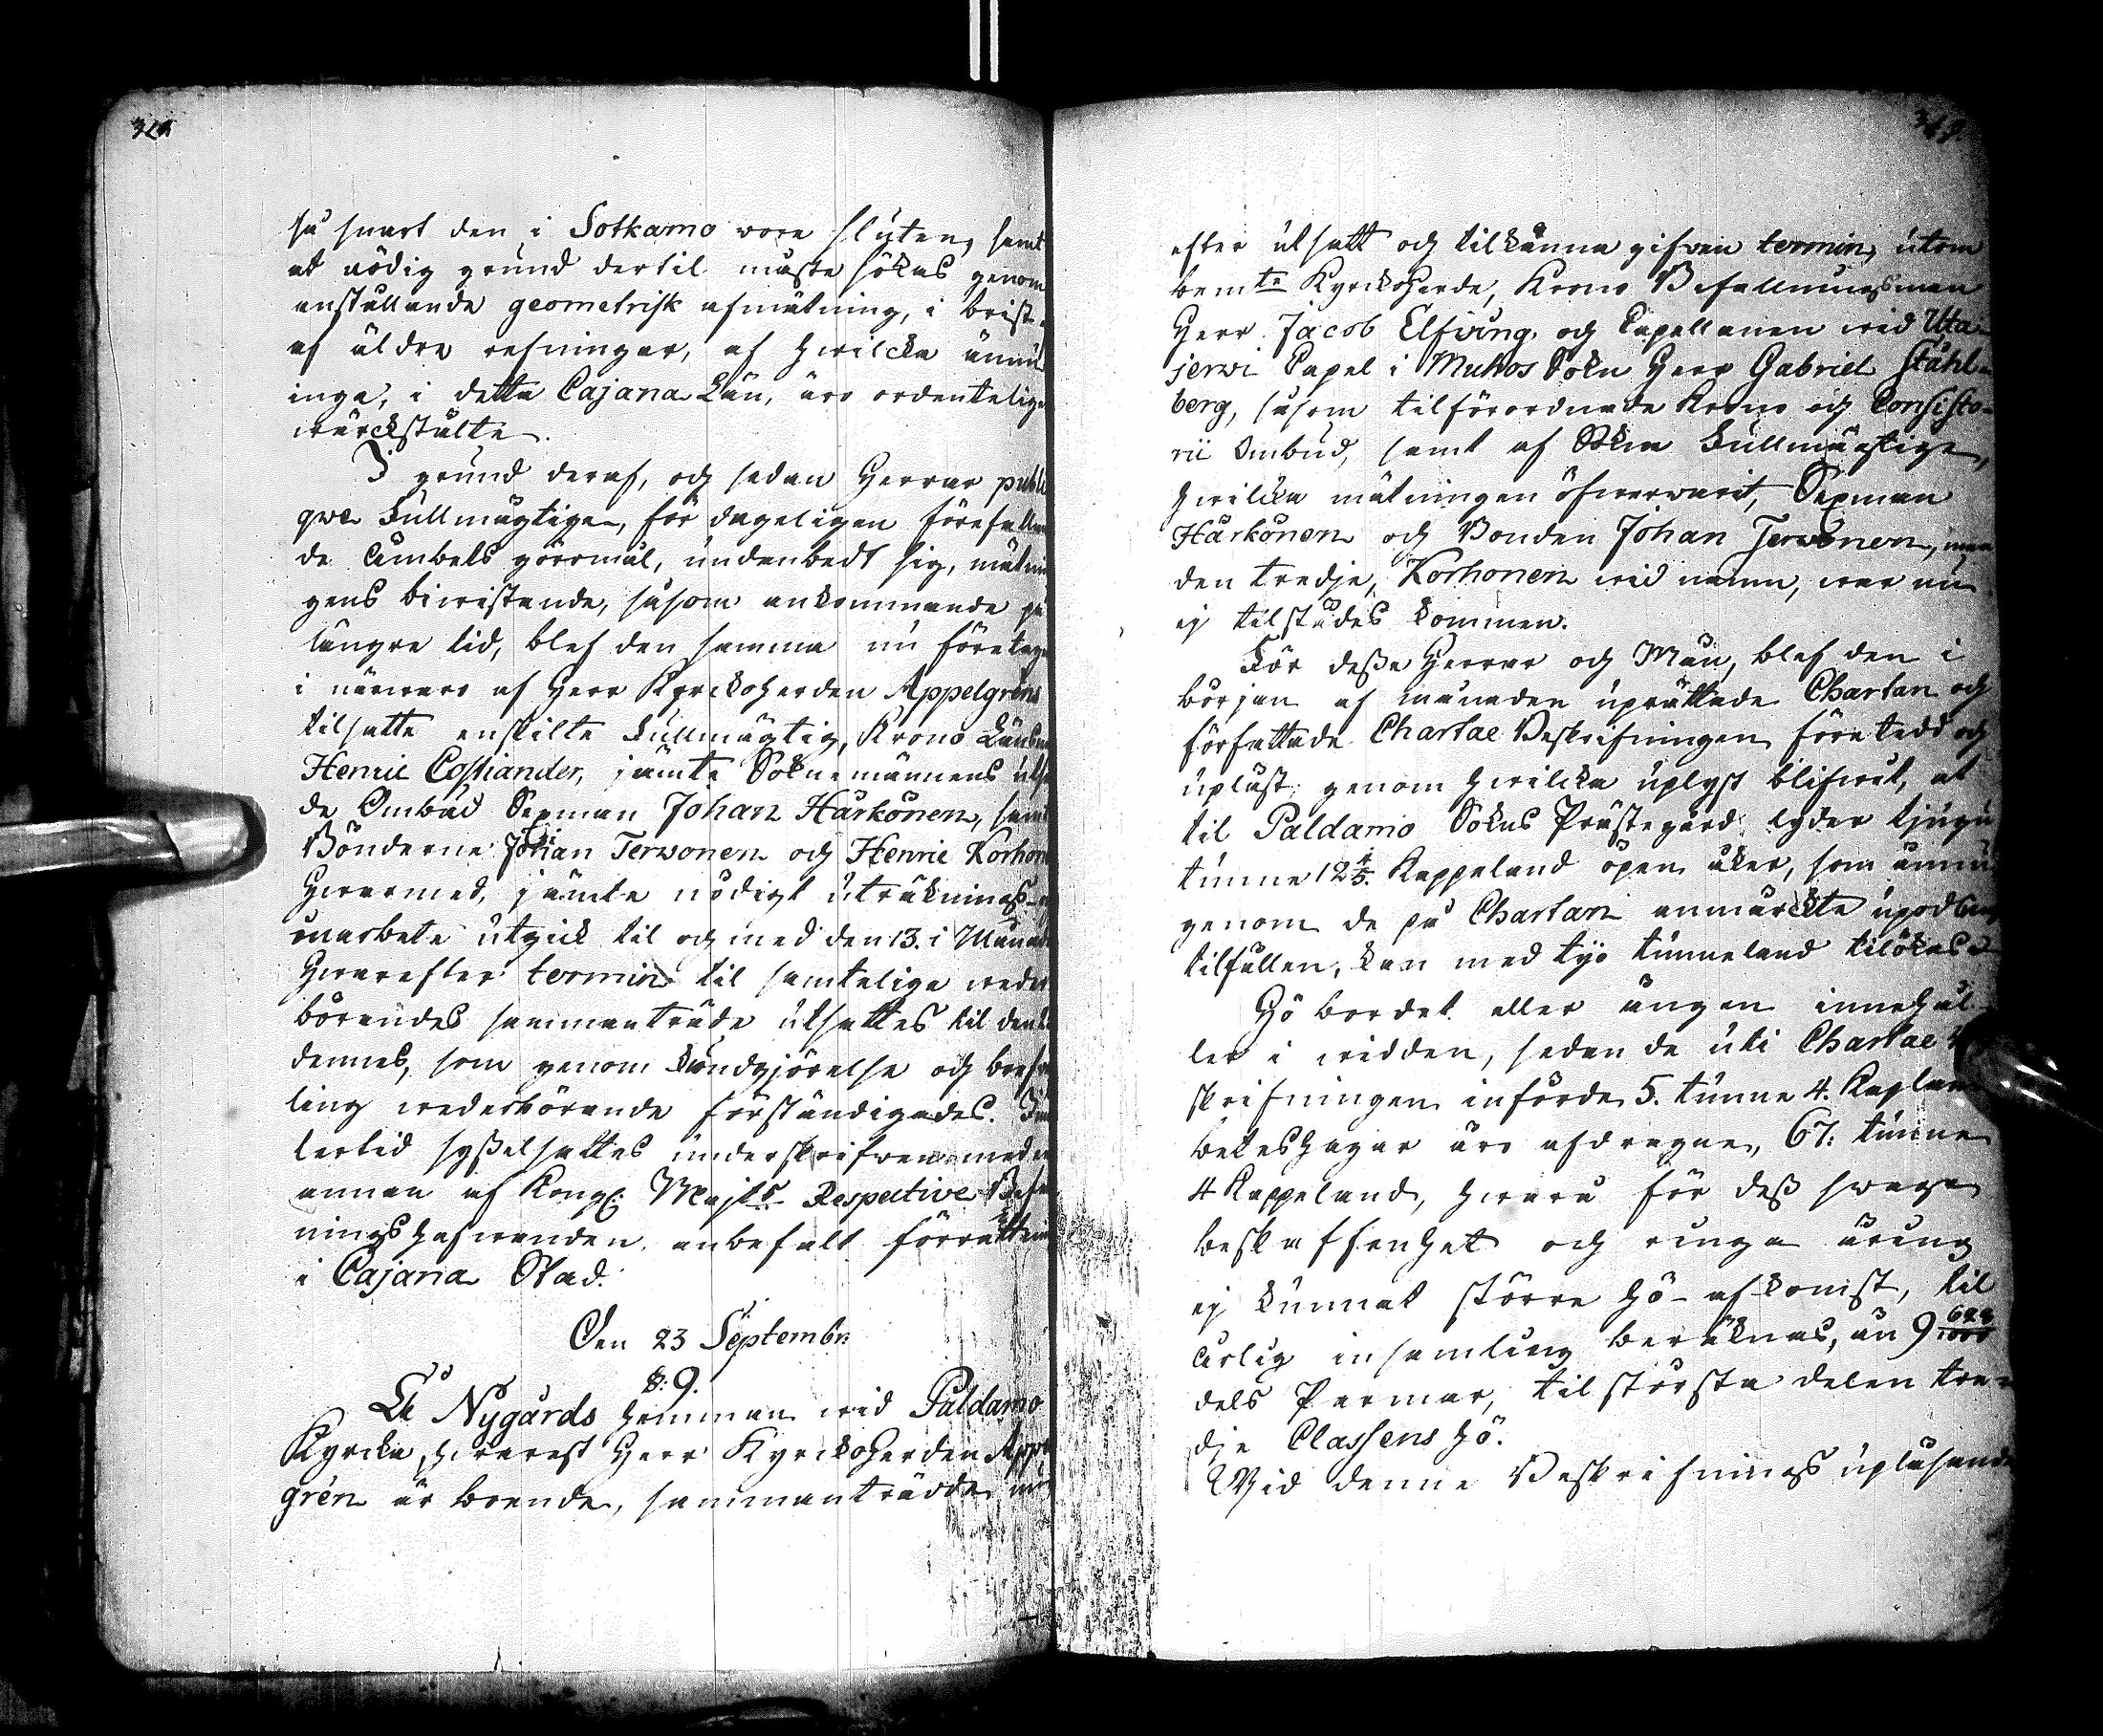 så snart den i Sotkamo vore sluten, samt
at nödig grund dertil måste sökas genom
anstållande geometrisk afmätning, i brist
af äldre refningar, af hvilcka ännu
inga, i detta Cajana Län, äro ordentelige
wärckstälte.
I grund deraf, och sedan Herrar publi
qve Fullmägtige, för dageligen förefallan
de Ämbets göromål, undanbedt sig, mätnin
gens biwistande, såsom ankommande på
längre tid, blef den samma nu företagen
i närvaro af Herr Kyrckoherden Appelgréns
tilsatte enskilte Fullmägtig, Krono Länsman
Henric Costiander, jämte Soknemännens utse
de Ombud Sexman Johan Härkönen, samt
Bönderne Johan Terwonen och Henric Korhonen
Hwarmed, jämte nödigt uträknings
arbete utgick til och med den 13. i Månaden
Hwarefter termin til samtelige weder
börandes sammanträde utsattes til den
dennes, som genom kundgjörelse och brefwex
ling wederbörande förständigades. Imed
lertid sysselsattes underskrifwen med en
annan af Kongl. Majts Respective Befal
ningshafwanden anbefalt förrättning
i Cajana Stad.
Den 23 Septembr.
§. 9.
Å Nygårds Hemman wid Paldamo
Kyrcka, hwarest Herr Kyrckoherden Appel
grén är boende, sammanträdde nu
369.
efter utsatt och tilkänna gifven termin, utom
bemte Kyrckoherde, Krono Befallningsman
Herr Jacob Elfving, och Capellanen wid Uta-
jerwi Capel i Muhos Sokn Herr Gabriel Ståhl-
berg, såsom tilförordnade Krono och Consisto-
rii Ombud, samt af Sokne Fullmägtige,
hwilcka mätningen öfwerwarit, Sexman
Härkönen och Bonden Johan Terwonen, men
den tredje, Korhonen wid namn, war nu
ej tilstädes kommen.
För desse Herrar och Män, blef den i
början af månaden uprättade Chartan och
författade Chartae Beskrifningen företedd och
upläst, genom hwilcka uplyst blifwit, at
til Paldamo Sokns Prästegård lyder tjugu
tunne 12 4/5. Kappeland öpen åker, som ännu
genom de på Chartan anmärckte upodlings
tilfällen, kan med tijo tunneland tilökas.
Hö bordet eller ängen innehål-
ler i widden, sedan de uti Chartae Be
skrifningen införde 5. tunne 4. Kapland
beteshagar äro afdragne, 67. tunne
4 Kappeland, hwaraf för dess swaga
beskaffenhet och ringa äring
ej kunnat större hö-afkomst, til
årlig insamling beräknas, än 9
dels Parmar, til största delen tre-
dje Classens hö.
Wid denne Beskrifnings upläsande